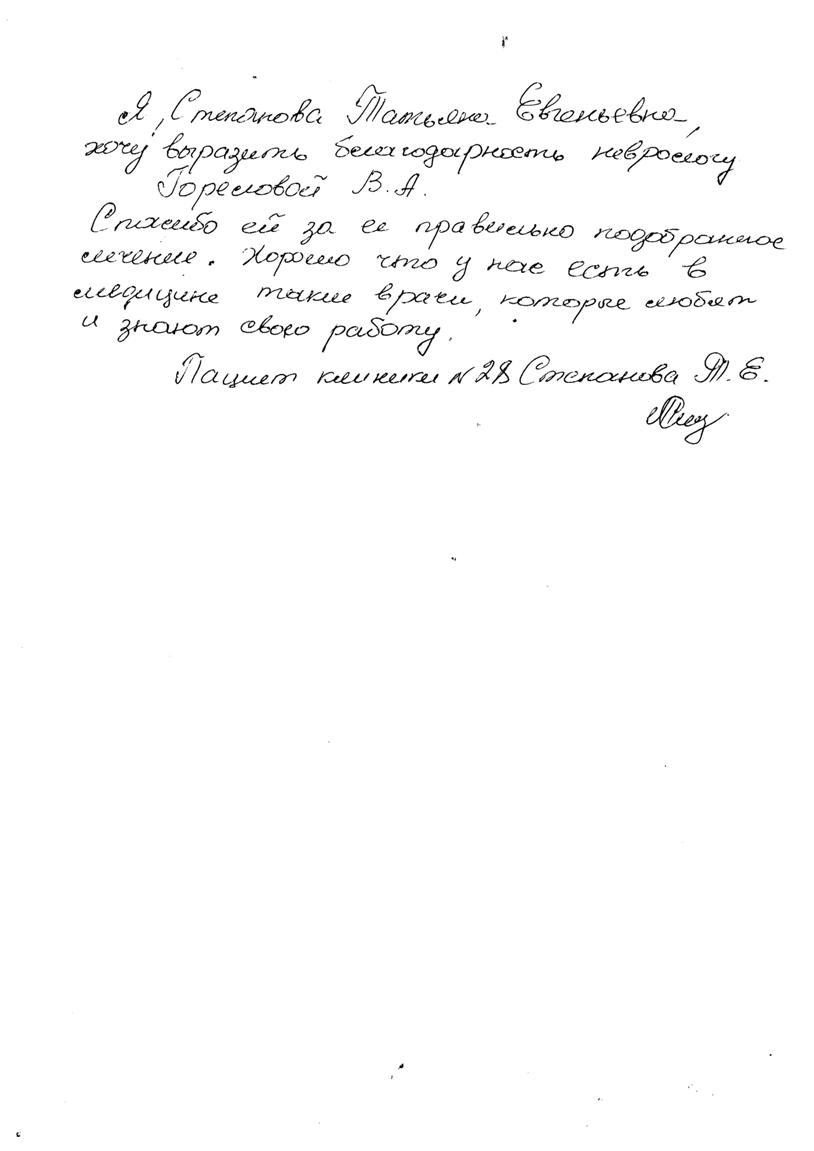 Я, Степанова Татьяна Евгеньевна,
хочу выразить благодарность неврологу
Гореловой В.А.
Спасибо ей за ее правильно подобранное
лечение. Хорошо что у нас есть в
медицине такие врачи, которые любят
и знают свою работу.
Пациент клиники N 28 Степанова Т.Е.